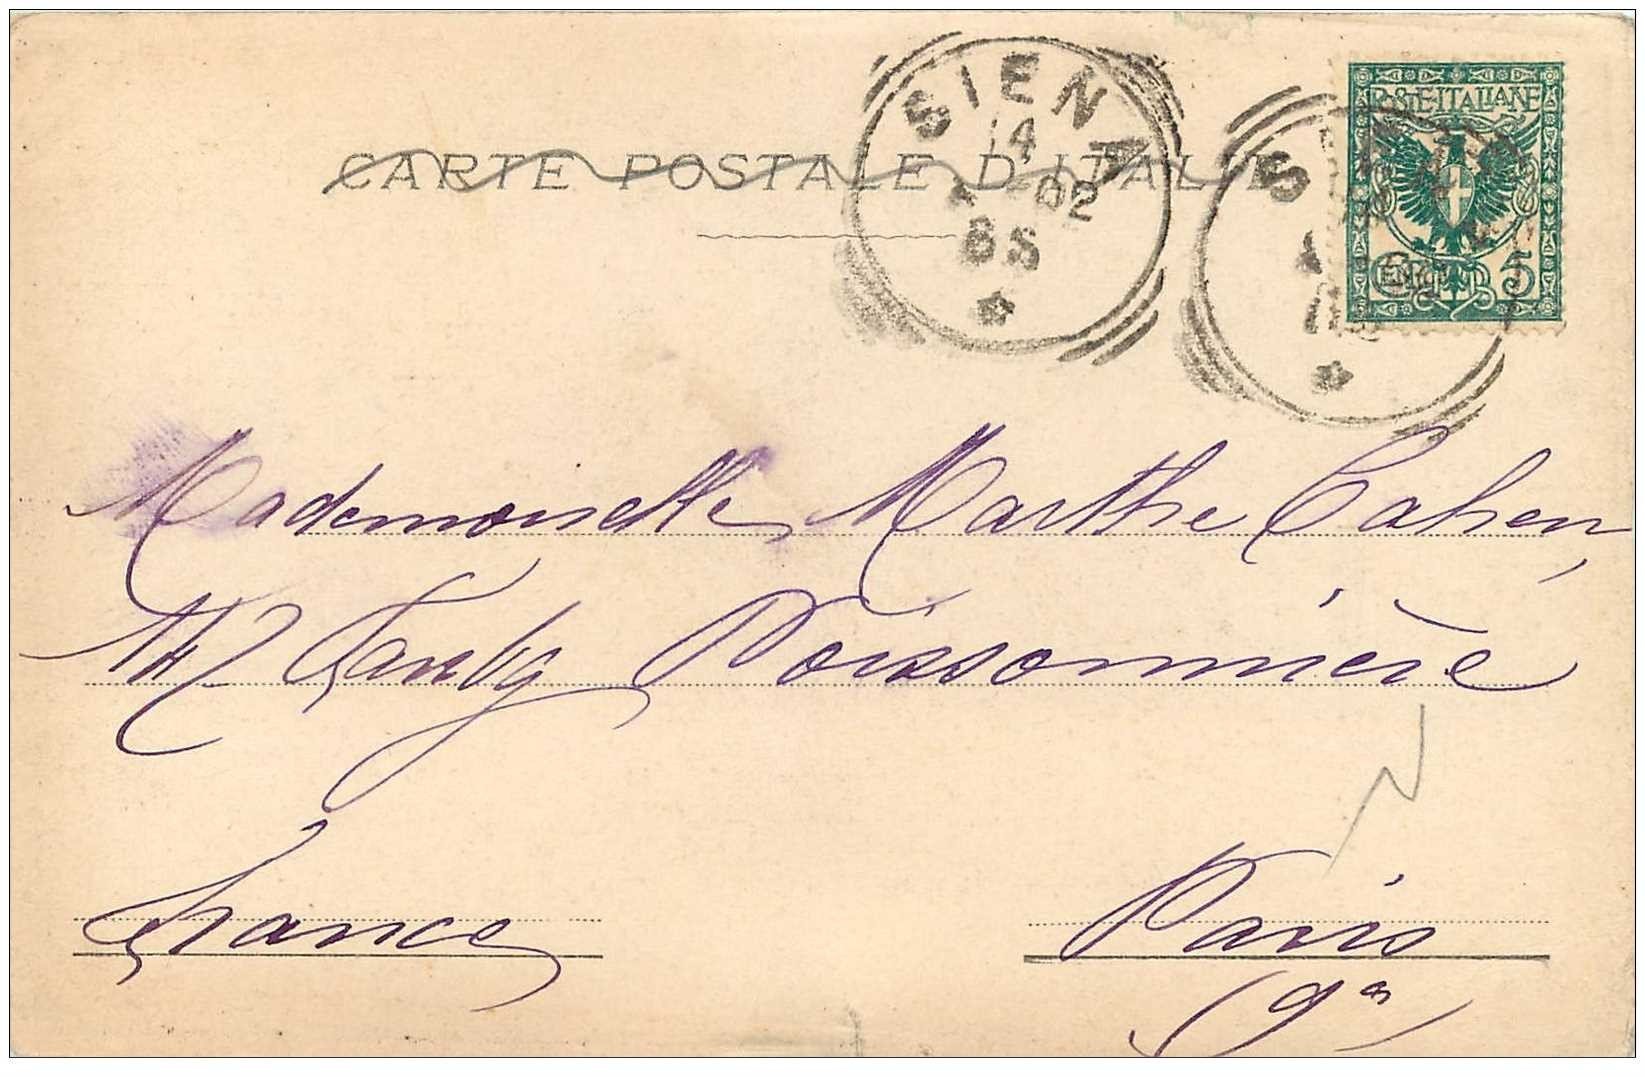 CARTE POSTALE D'ITALIE
SIENA
14
02
8 S
POSTE·ITALIANE
5
Mademoiselle Marthe Cahen,
142 Faubg Poissonnière
Paris
France
(9e)